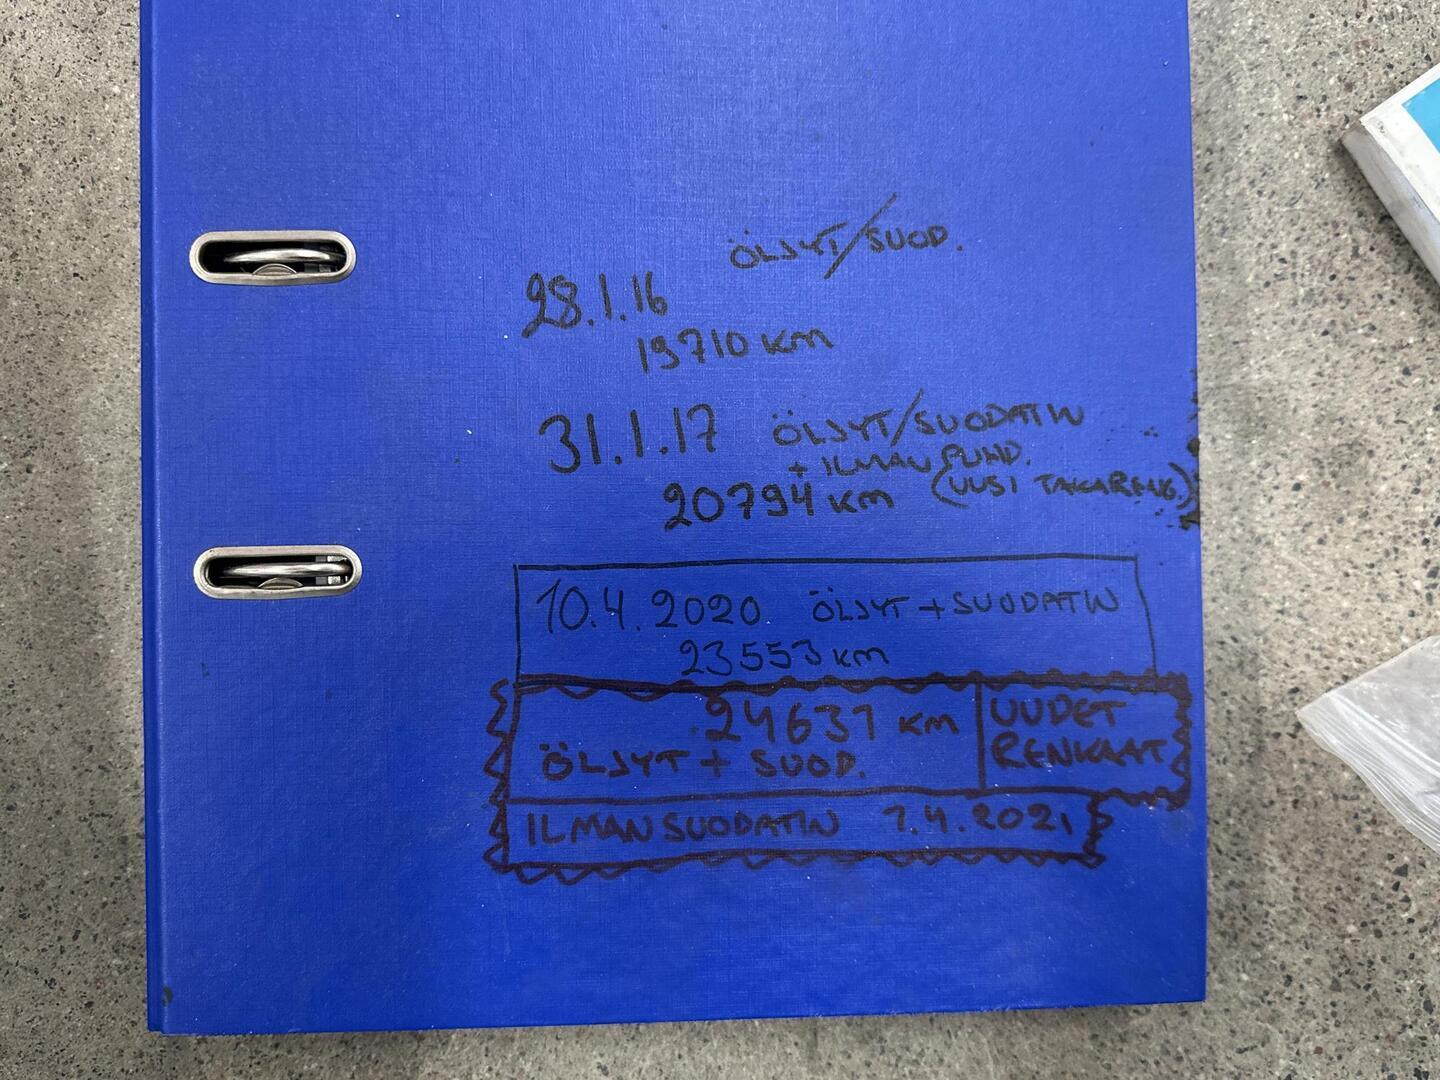 ÖLJYT/SUOD.
28.1.16
19710 KM
31.1.17 ÖLJYT/SUODATIN
+ ILMAN PUHD.
20794 KM (UUSI TAKARENG.)
10.4.2020 ÖLJYT + SUODATIN
23553 KM
24631 KM UUDET
ÖLJYT + SUOD. RENKAAT
ILMANSUODATIN 1.4.2021